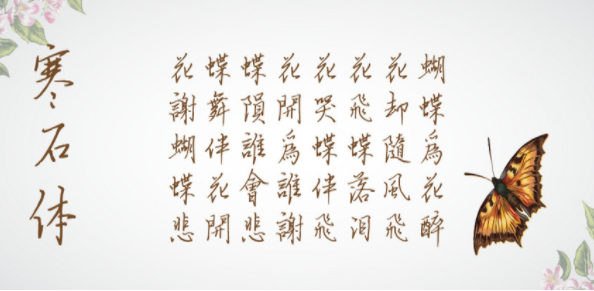 寒石体
蝴蝶爲花醉
花却隨風飛
花飛蝶落泪
花哭蝶伴飛
花開爲誰謝
蝶隕誰會悲
蝶舞伴花開
花謝蝴蝶悲